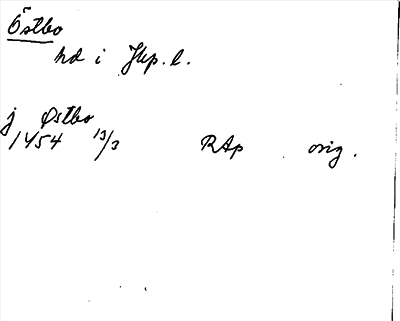 Östbo
hd i Jkp. l.
j Østbo
1454 13/3 RAp orig.